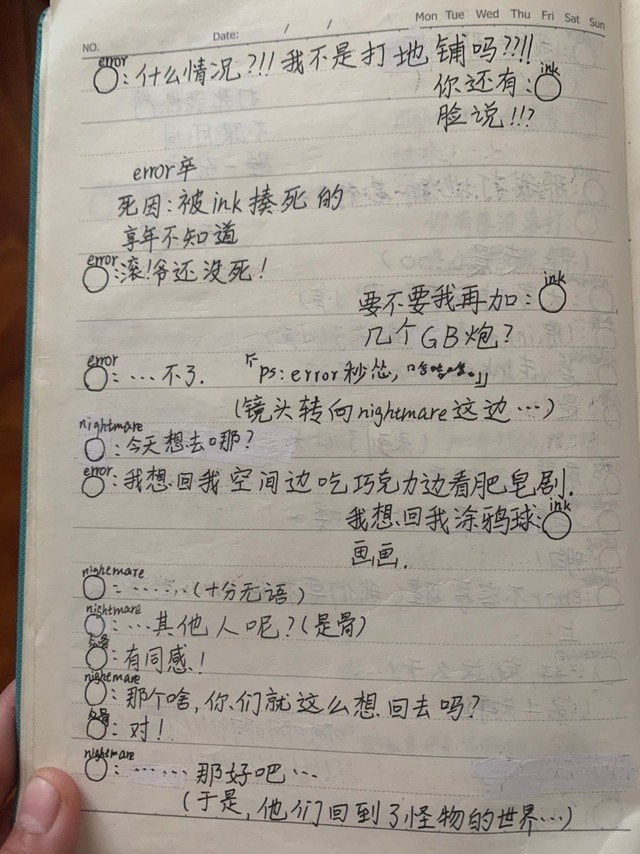 Mon Tue Wed Thu Fri Sat Sun
NO. Date: / /
error
○:什么情况?!!我不是打地铺吗??!!
ink
你还有:○
脸说!!?
error卒
死因:被ink揍死的
享年不知道
error
○:滚!爷还没死!
ink
要不要我再加:○
几个GB炮?
error
○:…不了.『ps:error秒怂,哈哈哈。』
(镜头转向nightmare这边…)
nightmare
○:今天想去哪?
error
○:我想回我空间边吃巧克力边看肥皂剧.
ink
我想回我涂鸦球:○
画画.
nightmare
○:……(十分无语)
nightmare
○:…其他人呢?(是骨)
众骨
○:有同感!
nightmare
○:那个啥,你们就这么想回去吗?
众骨
○:对!
nightmare
○:……那好吧…
(于是,他们回到了怪物的世界…)